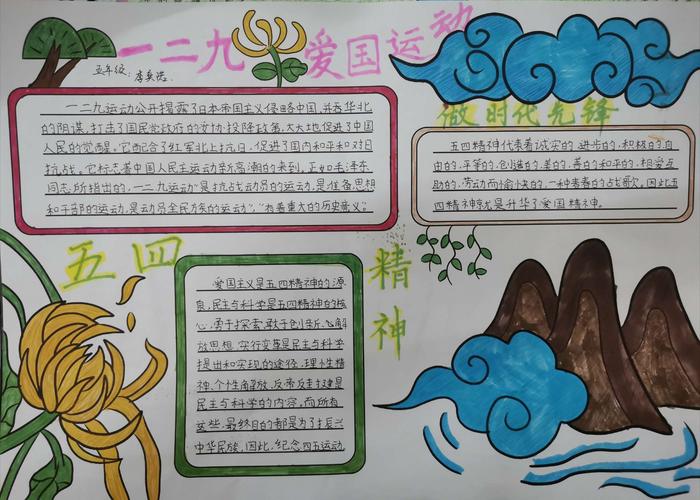 一二九 爱国运动
五年级：李奕诺
一二九运动公开揭露了日本帝国主义侵略中国，并吞华北
的阴谋，打击了国民党政府的妥协投降政策，大大地促进了中国
人民的觉醒。它配合了红军北上抗日，促进了国内和平和对日
抗战。它标志着中国人民民主运动新高潮的来到。正如毛泽东
同志所指出的，一二九运动"是抗战动员的运动，是准备思想
和干部的运动，是动员全民族的运动"，"有着重大的历史意义"。
做时代先锋
五四精神代表着诚实的、进步的、积极的、自
由的、平等的、创造的、美的、善的、和平的、相爱互
助的、劳动而愉快的，一种青春的战歌。因此五
四精神就是升华了爱国精神。
五四
精神
爱国主义是五四精神的源
泉，民主与科学是五四精神的核
心，勇于探索、敢于创新、
放思想、实行变革是民主与科学
提出和实现的途径，理性精
神、个性解放、反帝反封建是
民主与科学的内容。而所有
这些，最终目的都是为了振兴
中华民族。因此，纪念四五运动，